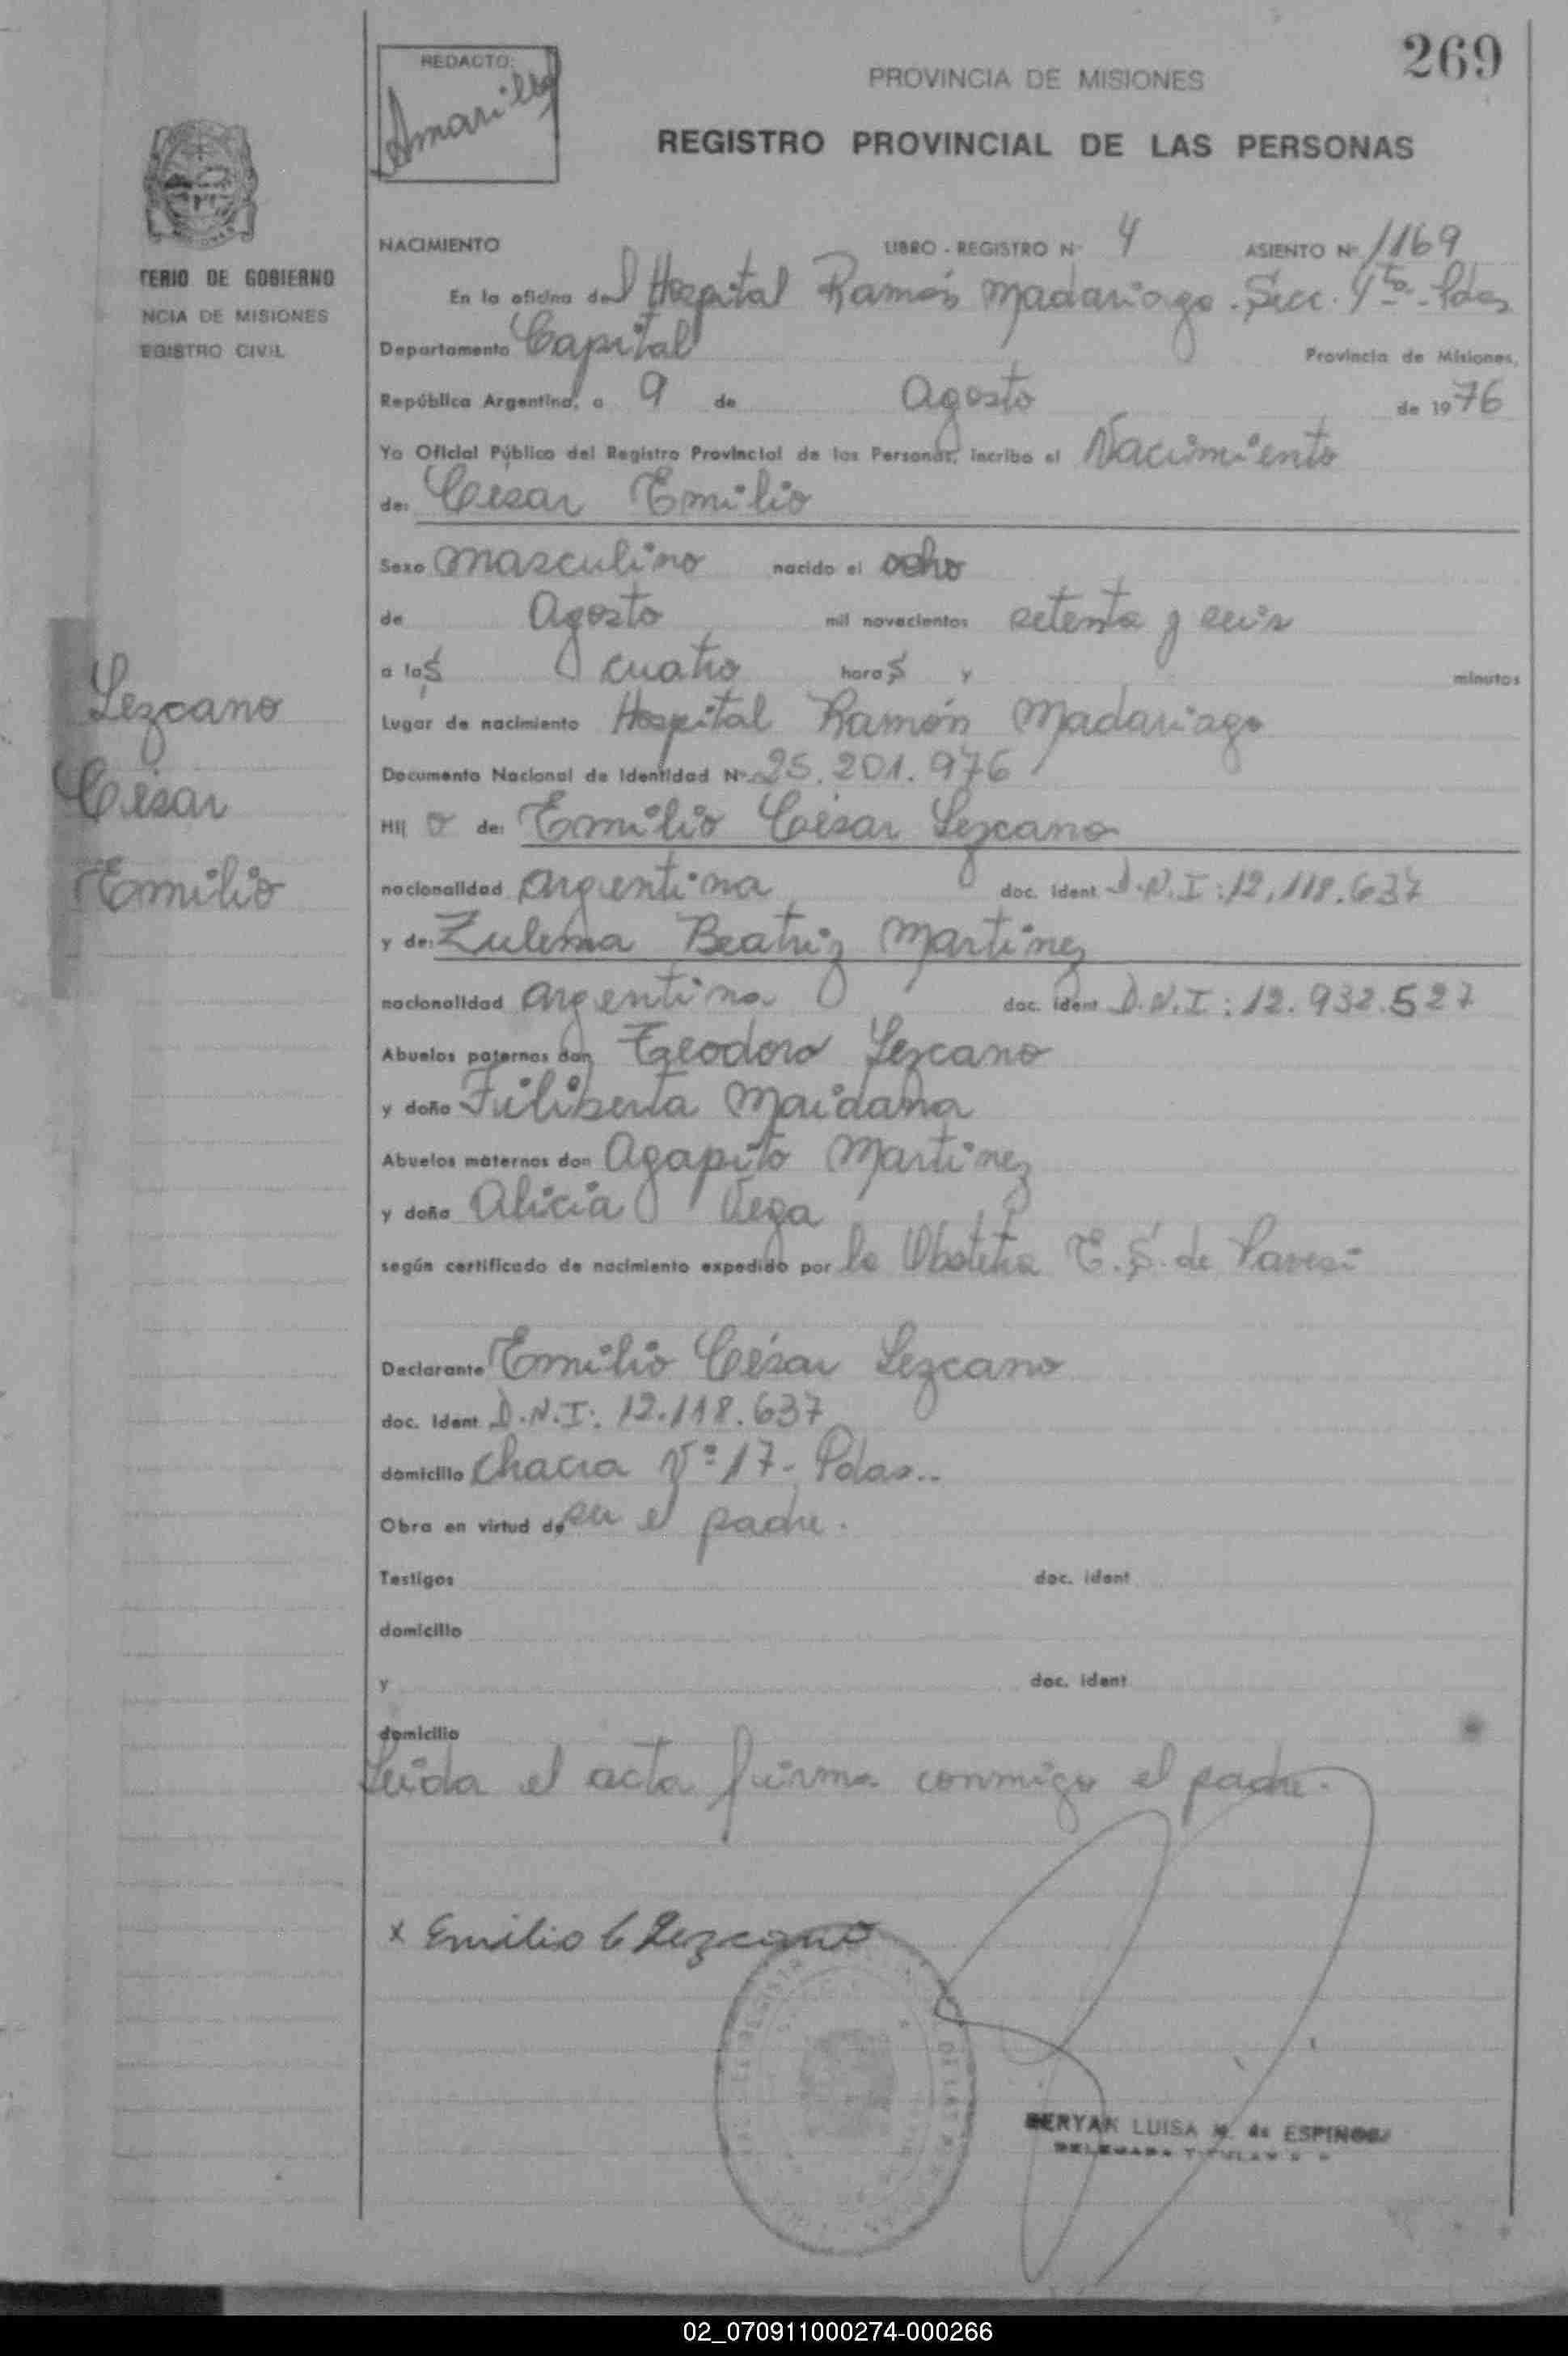 269
REDACTO:
Amarilla
PROVINCIA DE MISIONES
REGISTRO PROVINCIAL DE LAS PERSONAS
TERIO DE GOBIERNO
NCIA DE MISIONES
EGISTRO CIVIL
NACIMIENTO LIBRO - REGISTRO Nº 4 ASIENTO Nº 1169
En la oficina del Hospital Ramón Madariaga - Secc. 4ta Pdas
Departamento Capital Provincia de Misiones,
República Argentina, a 9 de Agosto de 1976
Yo Oficial Público del Registro Provincial de las Personas, incribo el Nacimiento
de: César Emilio
Sexo masculino nacido el ocho
de Agosto mil novecientos setenta y seis
a las cuatro horas y minutos
Lugar de nacimiento Hospital Ramón Madariaga
Documento Nacional de Identidad Nº 25.201.976
Hij o de: Emilio César Lezcano
nacionalidad argentina doc. ident D.N.I: 12.118.637
y de: Zulema Beatriz Martinez
nacionalidad argentina doc. ident D.N.I: 12.932.527
Abuelos paternos don Teodoro Lezcano
y doña Filiberta Maidana
Abuelos maternos don Agapito Martinez
y doña Alicia Vega
según certificado de nacimiento expedido por la Obstetra E. S. de Pavesi
Lezcano
César
Emilio
Declarante Emilio César Lezcano
doc. ident D.N.I: 12.118.637
domicilio Chacra Nº 17 - Pdas..
Obra en virtud de ser el padre.
Testigos doc. ident
domicilio
y doc. ident
domicilio
Leida el acta firma conmigo el padre.
x Emilio C Lezcano
LUISA M. de ESPINOSA
02_070911000274-000266